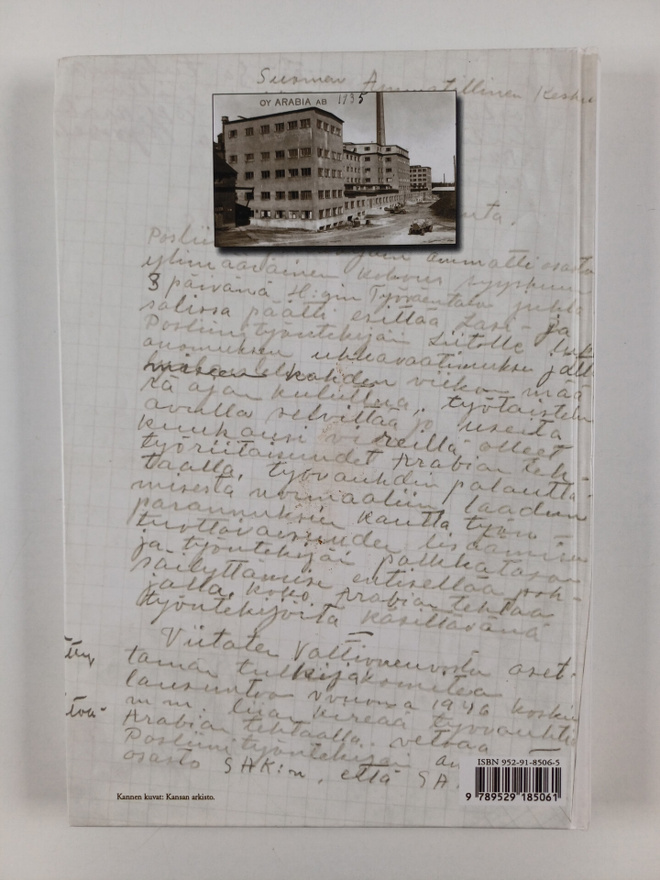 Suomen Ammatillinen Kesku
OY ARABIA AB 1935
Posliin ammattiosasto
ylimääräinen kokous syyskuun
8 päivänä H:gin Työväentalon juhla
salissa päätti esittää Lasi- ja
Posliinityöntekijäin Liitolle
anomuksen uhkavaatimuksen jätt
kahden viikon mää
rä ajan kuluttua, työtaistelun
avulla selvittää jo useita
kuukausi vireillä olleet
työriitaisuudet Arabian teh-
taalla, työvauhdin palautta
misesta normaaliin, laadun
parannuksien kautta työn
tuottavaisuuden lisäämise
ja työntekijäin palkkatason
säilyttämise entisellään poh-
jalla, koko Arabian tehtaan
työntekijöitä käsittävänä
Viitaten Valtioneuvosta aset-
taman tutkijakomitea
lausuntoa vuonna 1946 koskien
m.m. liian kireää työvauhtia
Arabian tehtaalla, vetoaa
Posliinityöntekijäin
osasto SAK:n, että SA
Kannen kuvat: Kansan arkisto.
ISBN 952-91-8506-5
9 789529 185061